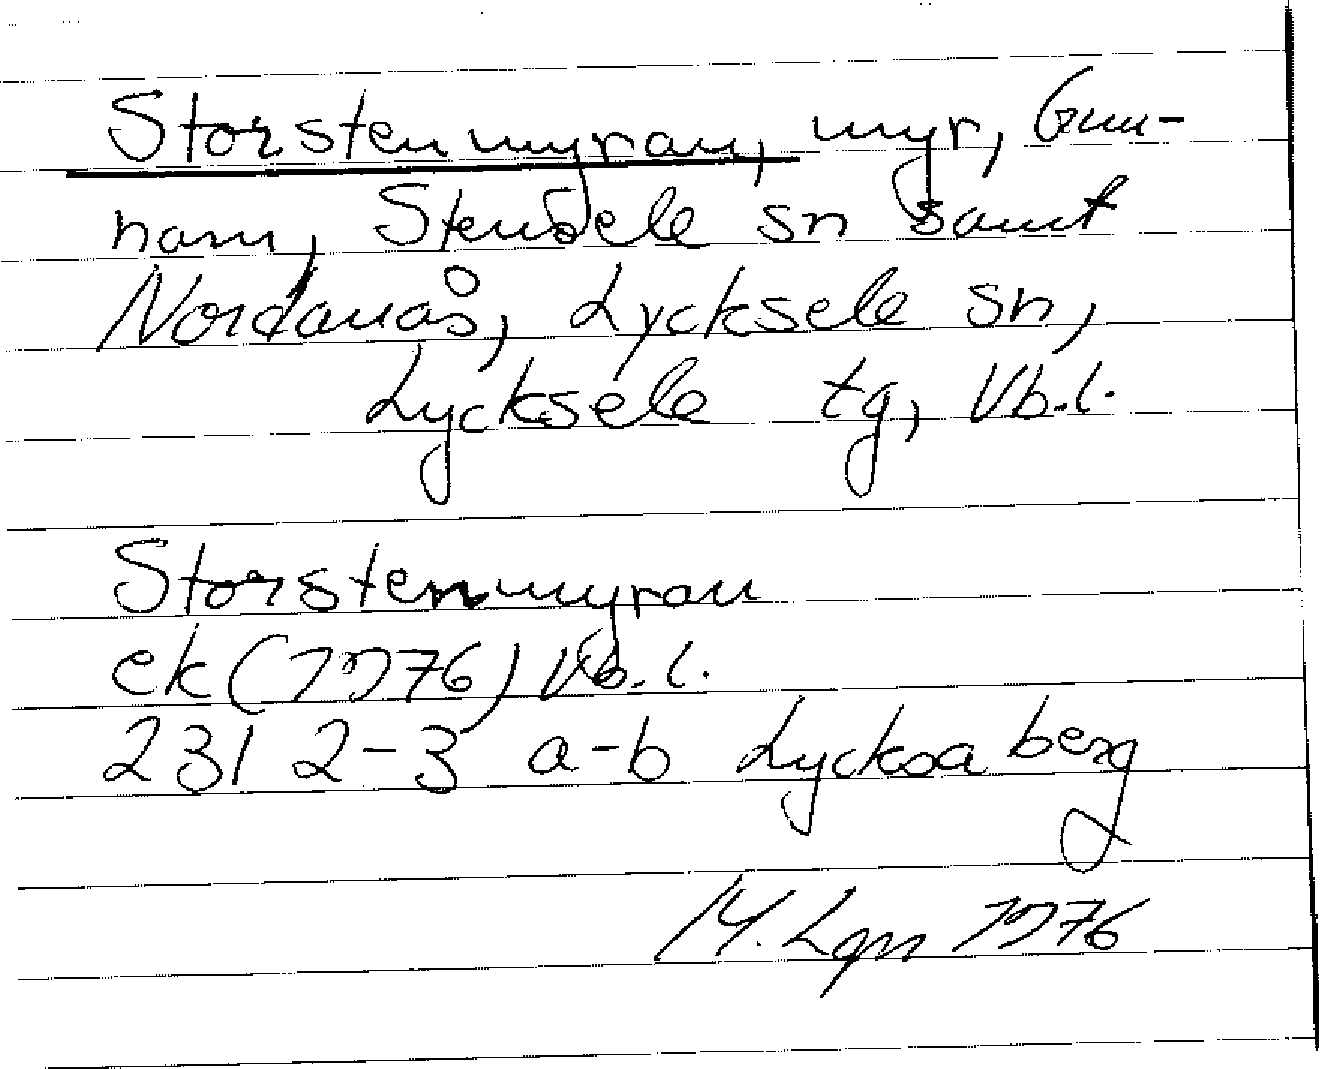 Storstenmyran, myr, Gun-
narn, Stensele sn samt
Nordanås, Lycksele sn,
Lycksele tg, Vb.l.
Storstenmyran
ek (1976) Vb.l.
231 2-3 a-b Lycksaberg
Lgn 1976